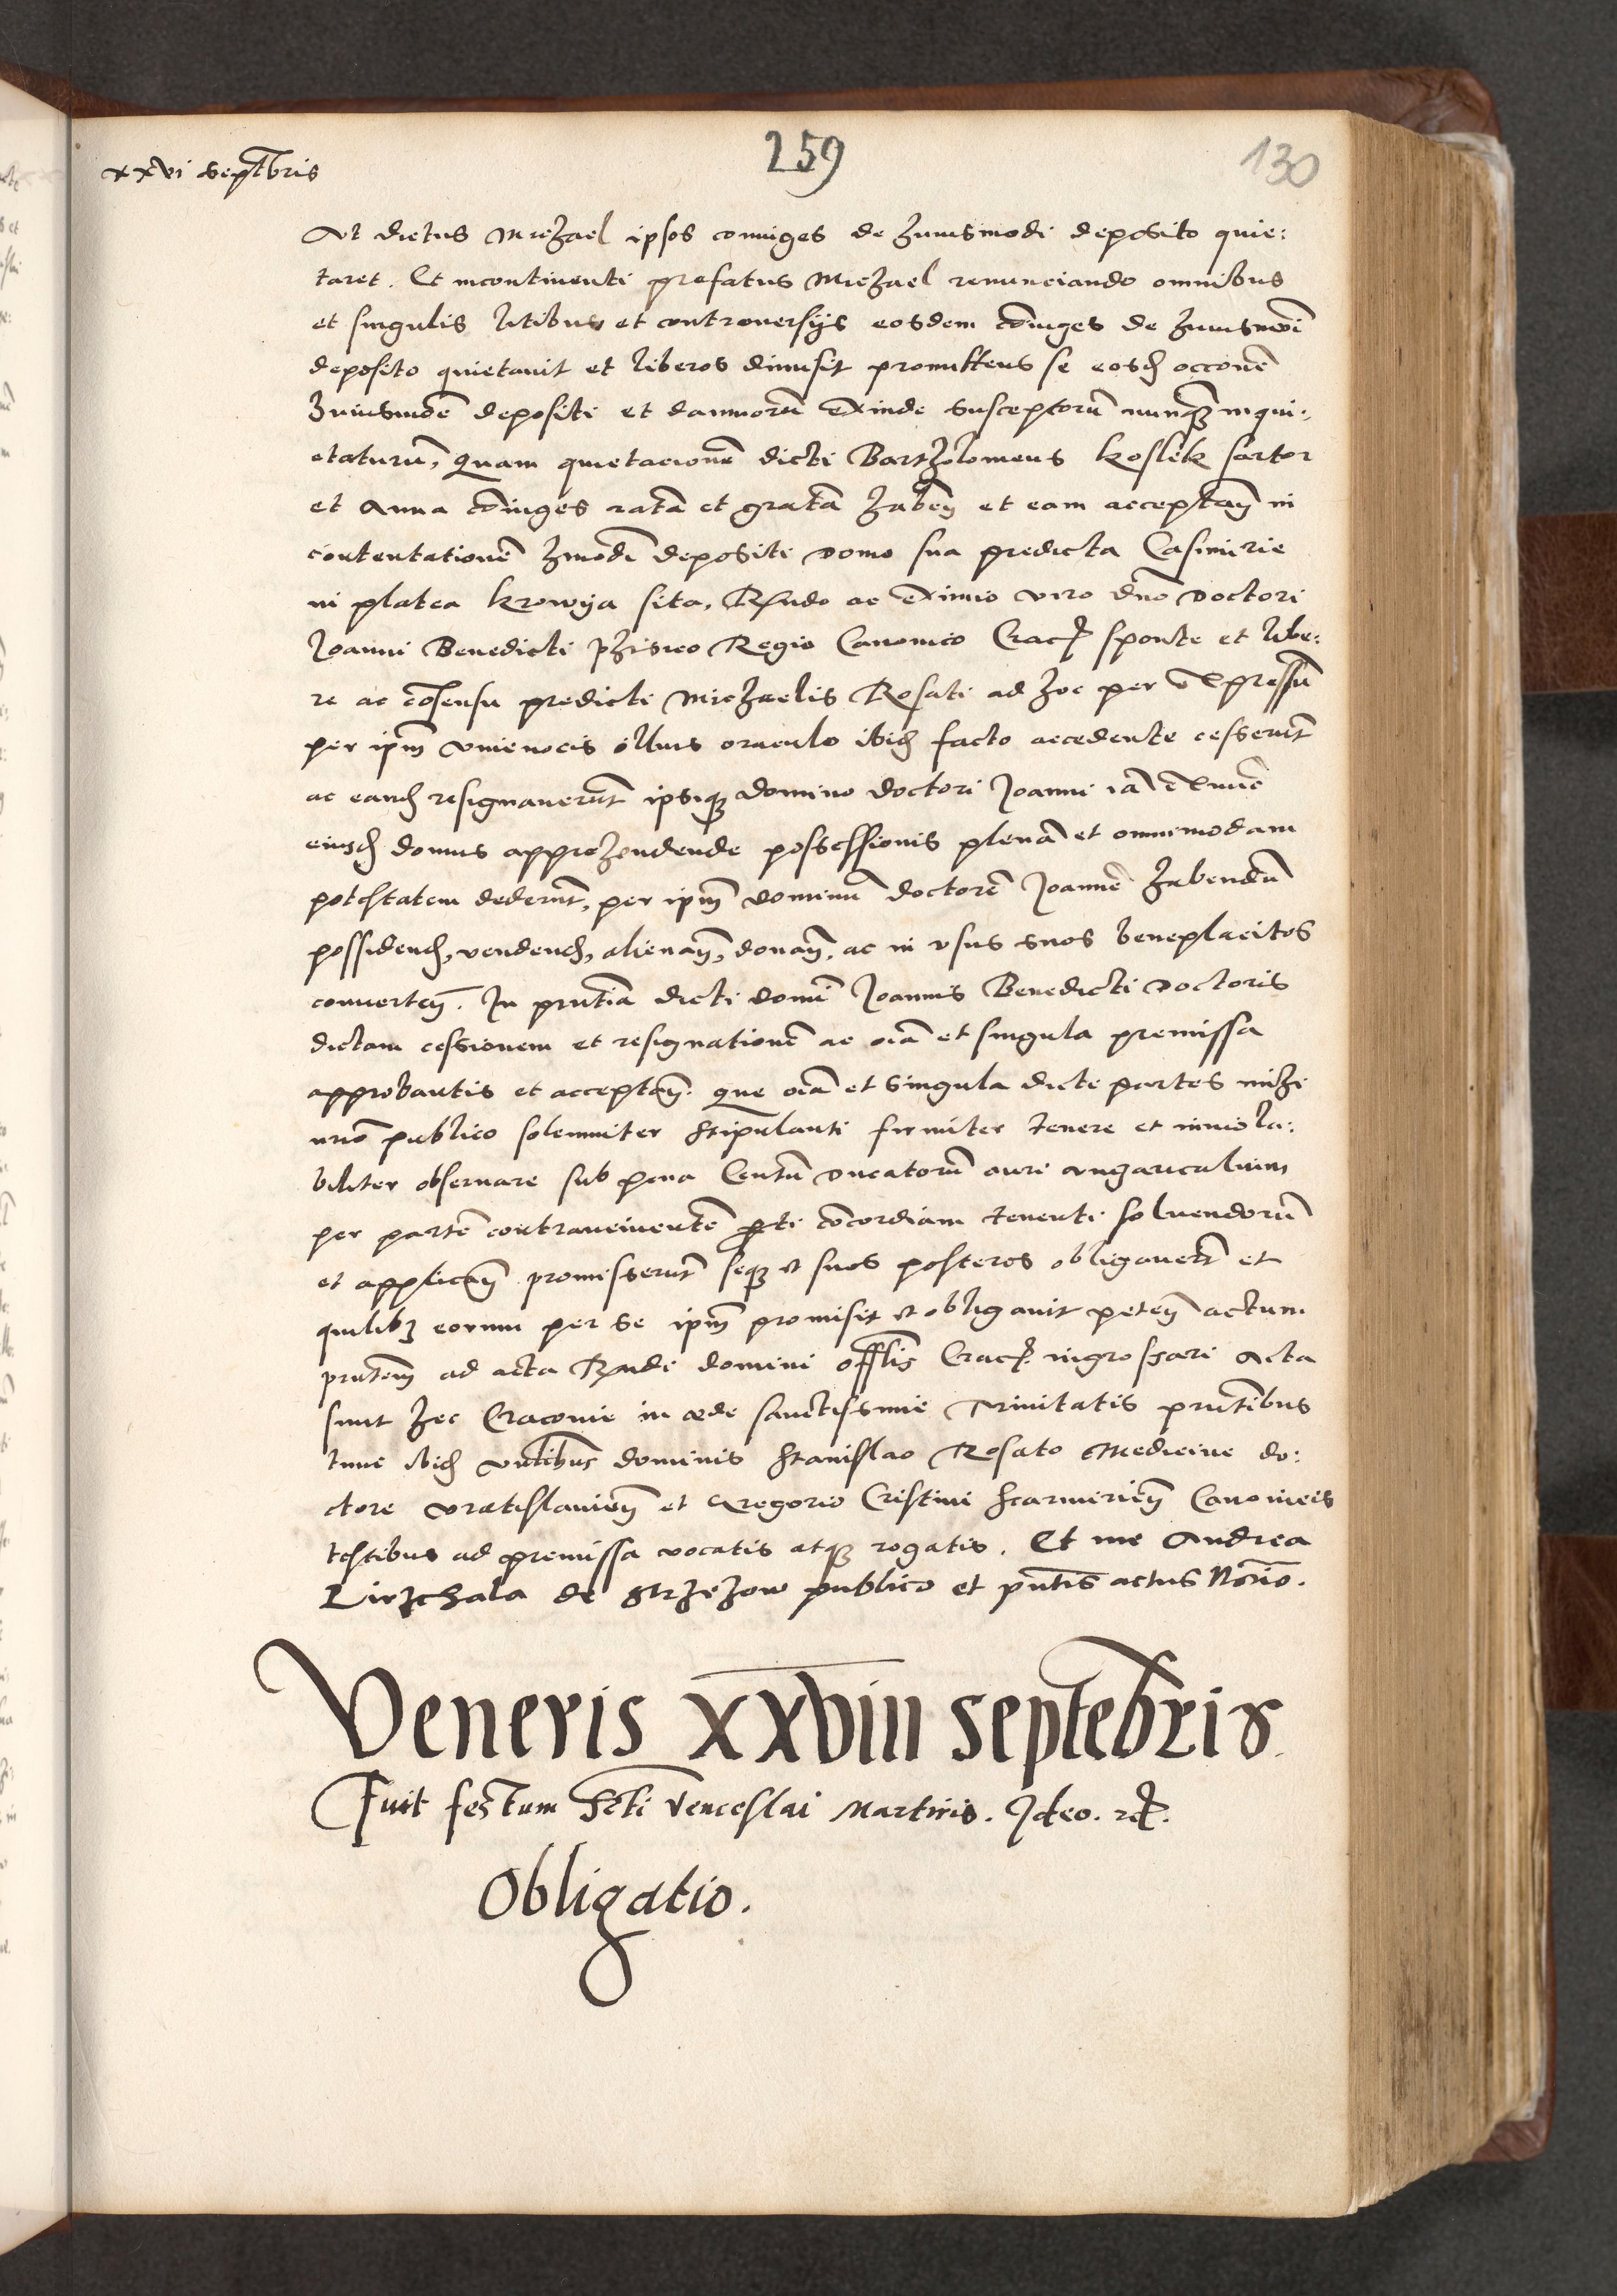 259
130
xxvi septēbris
Ut dictus Michael ipsos coniuges de huiusmodi deposito quie:
taret. Et incontinenti prefatus Michael renunciando omnibus
et singulis litibus et controuersijs eosdem cōiuges de huiusmōi
deposito quietauit et liberos dimisit promittens se eosd occōnē
huiusmōi depositi et damnorū exinde susceptorū nunq̄ inqui:
etaturū, Quam quietacionē dicti Bartholomeus Koslek sartor
et Anna cōiuges ratā et gratā haben̄ et eam acceptan̄ in
contentationē hmōdi depositi domo sua predicta Casimirie
in platea krowya sita, Rndo ac eximio viro dno doctori
Joanni Benedicti phisico Regio Canonico Crac̄ sponte et libe:
re ac cōsensu predicti Michaelis Rosati ad hoc per expressū
per ipm̄ viuevocis illius oraculo ibid facto accedente cesserūt
ac eand resignauerūt ipsiq̄ domino doctori Joanni iā
eiusd domus apprehendende possessionis plenā et omnimodam
potestatem dederūt, per ipm̄ dominū doctorē Joannē habendā
possidend, vendend, alienan̄, donan̄, ac in vsus suos beneplacitos
conuerten̄. In pntiā dicti domī Joannis Benedicti doctoris
dictam cessionem et resignationē ac oīa et singula premissa
approbantis et acceptan̄. que oīa et singula dicte partes mihi
nrio publico solenniter stipulanti firmiter tenere et inuiola:
biliter obseruare sub pena Centū ducatorū auri vngaricalium
per partē contrauenientē pti cōcordiam tenenti soluendorū
et applican̄ promisserūt seq̄ et suos posteros obligauerūt et
quilibz eorum per se ipm̄ promisit et obligauit peten̄ actum
pntem̄ ad acta Rndi domini offlis Crac̄. ingrossari Acta
sunt hec Cracouie in æde sanctissimæ Trinitatis pntibus
tunc ibid vntibus dominis Stanislao Rosato Medicine do:
ctore vratislauien̄ et Gregorio Cristini Scarmirien̄ Canonicis
testibus ad premissa vocatis atq̄ rogatis. Et me Andrea
de Strzezow publico et pntis actus Norio.
Veneris XXVIII septēbris.
Fuit festum Scti Venceslai Martiris. Ideo. rc̄.
Obligatio.